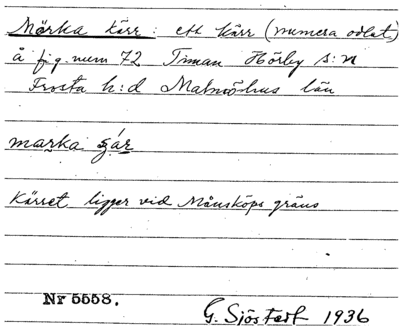 Mörka kärr: ett kärr (numera odlat)
å fig. num 72 Timan Hörby s:n
Frosta h:d Malmöhus län
marka
Kärret ligger vid Månsköps gräns
Nr 5558.
G. Sjöstedt 1936